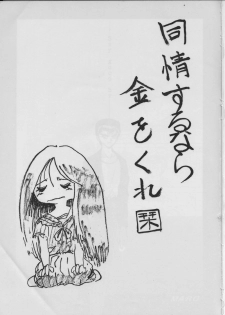 同情するなら
金をくれ
栞